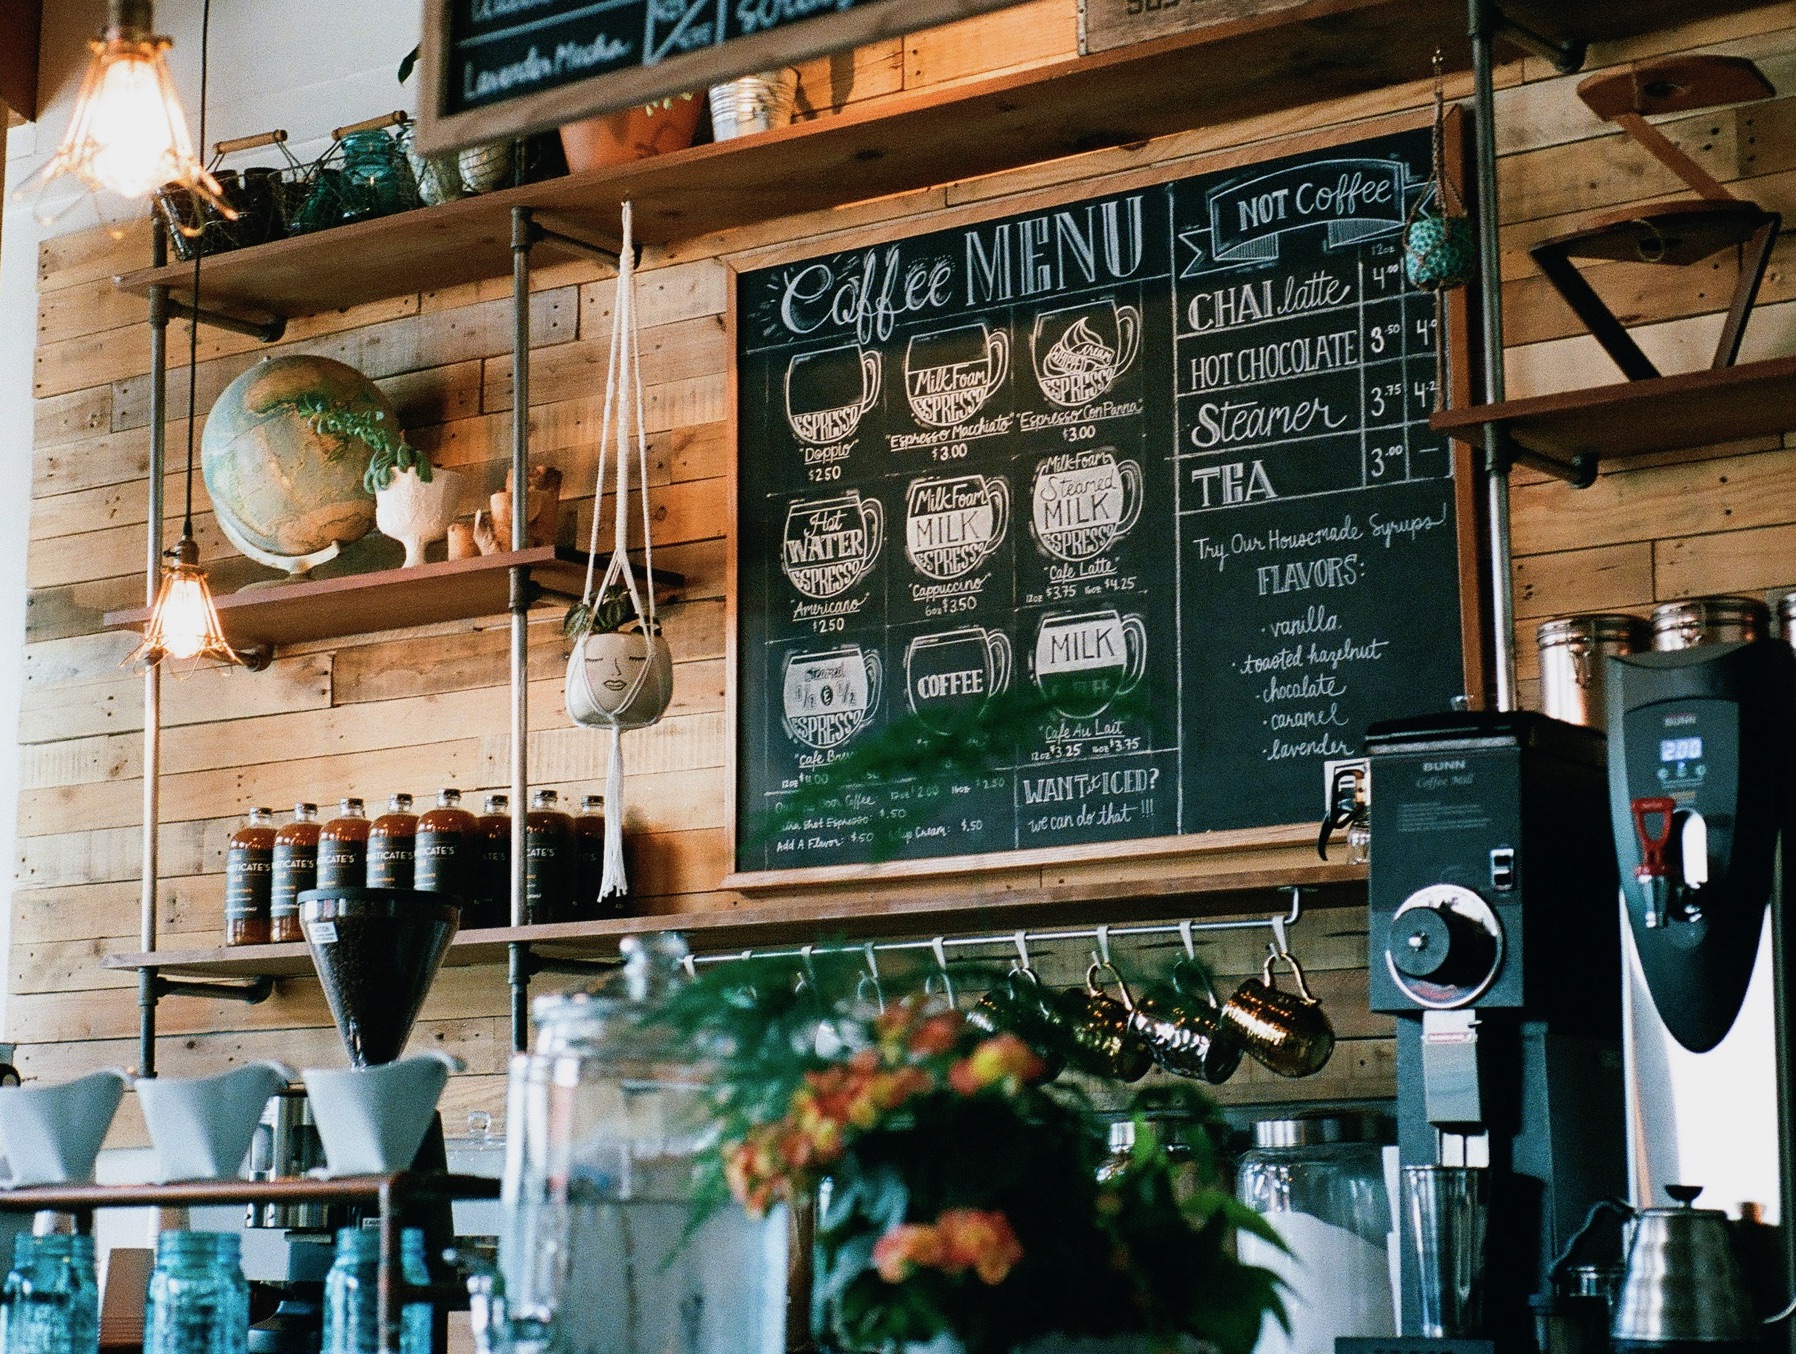 Lavender Mocha
Coffee MENU
ESPRESSO
"Doppio"
$2.50
Milk Foam
ESPRESSO
"Espresso Macchiato"
$3.00
Whipped Cream
ESPRESSO
"Espresso Con Panna"
$3.00
Hot
WATER
ESPRESSO
"Americano"
$2.50
Milk Foam
MILK
ESPRESSO
"Cappuccino"
6oz $3.50
Milk Foam
Steamed
MILK
ESPRESSO
"Cafe Latte"
12oz $3.75 16oz $4.25
Steamed
½ & ½
ESPRESSO
"Cafe Breve
12oz
COFFEE
MILK
"Cafe Au Lait"
12oz $3.25 16oz $3.75
Coffee 12oz $2.00 16oz $2.50
Shot Espresso: $.50
Add A Flavor: $.50 Whip Cream: $.50
WANT it ICED?
we can do that !!!
NOT Coffee
12oz
CHAI latte 4.00
HOT CHOCOLATE 3.50
Steamer 3.75
TEA 3.00 —
Try Our Housemade Syrups!
FLAVORS:
· vanilla
· toasted hazelnut
· chocolate
· caramel
· lavender
BUNN
Coffee Mill
BUNN
200